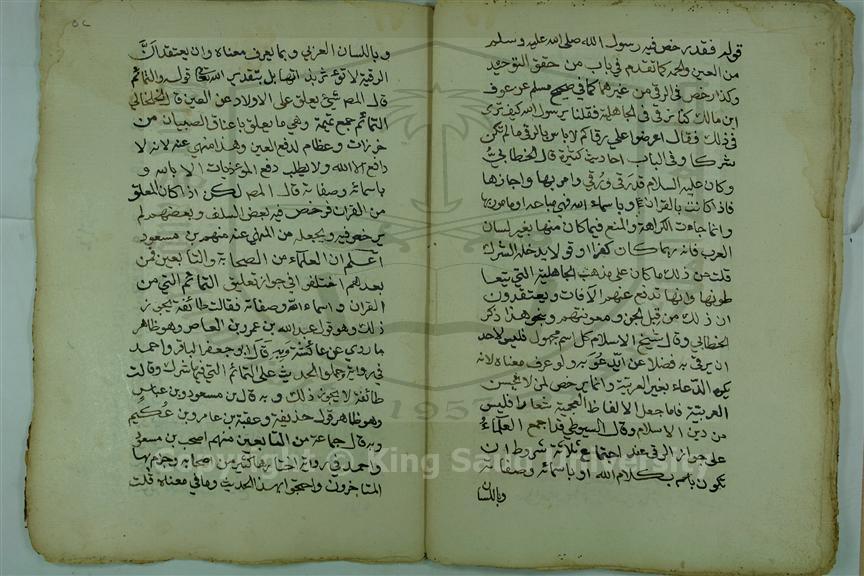 قوله فقد رخص فيه رسول الله صلى الله عليه وسلم
من العين والحمة كما تقدم في باب من حقق التوحيد
وكذا رخص في الرقى من غيرها كما في صحيح مسلم عن عوف
ابن مالك كنا نرقي في الجاهلية فقلنا يرسول الله كيف ترى
في ذلك فقال اعرضوا علي رقاكم لا باس بالرقى ما لم تكن
شركا وفي الباب احاديث كثيرة قال الخطابي
وكان عليه السلام قد رقى ورُقي وامر بها واجازها
فاذا كانت بالقران او باسماء الله فهي مباحة او مامور بها
وانما جاءت الكراهة والمنع فيما كان منها بغير لسان
العرب فانه ربما كان كفرا او قولا يدخله الشرك
قلت من ذلك ما كان على مذهب الجاهلية التي يتعا
طونها وانها تدفع عنهم الآفات ويعتقدون
ان ذلك من قبل الجن ومعونتهم وبنحو هذا ذكر
الخطابي وقال شيخ الاسلام كل اسم مجهول فليس لاحد
ان يرقي به فضلا عن ان يدعو به ولو عرف معناه لانه
يكره الدعاء بغير العربية وانما يرخص لمن لا يحسن
العربية فاما جعل الالفاظ العجمية شعارا فليس
من دين الاسلام وقال السيوطي قد اجمع العلماء
على جواز الرقى عند اجتماع ثلاثة شروط ان
تكون بكلام الله او باسمائه وصفاته
وباللسان
وباللسان العربي وبما يعرف معناه وان يعتقد ان
الرقية لا تؤثر بذاتها بل بتقدير الله تعالى قوله والتمائم
قال المص شيء يعلق على الاولاد عن العين قال الخلخالي
التمائم جمع تميمة وهي ما يعلق باعناق الصبيان من
خرزات وعظام لدفع العين وهذا منهي عنه لانه لا
دافع الا الله ولا يطلب دفع المؤذيات الا بالله و
باسمائه وصفاته قال المص لكن اذا كان المعلق
من القران فرخص فيه بعض السلف وبعضهم لم
يرخص فيه ويجعله من المنهي عنه منهم بن مسعود
اعلم ان العلماء من الصحابة والتابعين فمن
بعدهم اختلفوا في جواز تعليق التمائم التي من
القران واسماء الله وصفاته فقالت طائفة يجوز
ذلك وهو قول عبد الله بن عمرو بن العاص وهو ظاهر
ما روي عن عائشة وبه قال ابو جعفر الباقر واحمد
في رواية وحملوا الحديث على التمائم التي فيها شرك وقالت
طائفة لا يجوز ذلك وبه قال بن مسعود وبن عباس
وهو ظاهر قول حذيفة وعقبة بن عامر وبن عكيم
وبه قال جماعة من التابعين منهم اصحب بن مسعود
واحمد في رواية اختارها كثير من اصحابه وجزم بها
المتاخرون واحتجوا بهذا الحديث وما في معناه قلت
Copyright © King Saud University
1957